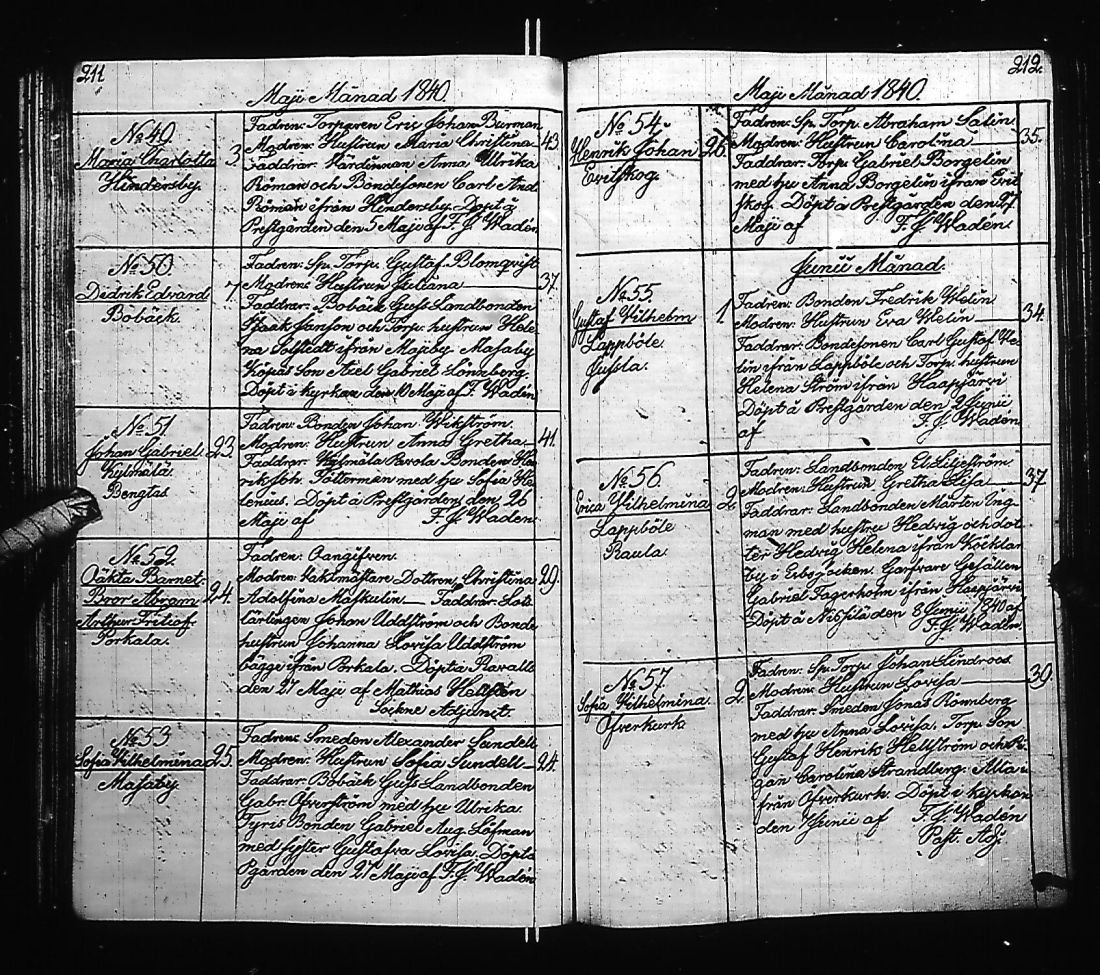 211
Maji Månad 1840.
No 49.
Maria Charlotta
Hindersby.
3.
Fadren: Torparen Eric Johan Burman
Modren: Hustrun Maria Christina
43.
Faddrar: Värdinnan Anna Ulrika
Röman och Bondesonen Carl And.
Röman ifrån Hindersby. Döpt å
Prestgården den 5 Maji af F. J. Wadén.
No 50.
Dedrik Edvard
Bobäck.
7.
Fadren: Sp. Torp. Gustaf Blomqvist
Modren: Hustrun Juliana
37.
Faddrar: Bobäck Gufs Landbonden
Isaak Janson och Torp. hustrun Hele
na Solstedt ifrån Majby. Masaby
Kopias Son Axel Gabriel Lönnberg.
Döpt å kyrkan den 10 Maji af F. Wadén
No 51
Johan Gabriel
Kylmälä
Bengtas.
23.
Fadren: Bonden Johan Wikström.
Modren: Hustrun Anna Gretha
41.
Faddrar: Kylmälä Parola Bonden Hen
rik Joh. Tötterman med hu Sofia He
lenius. Döpt å Prestgården den 26
Maji af F. J. Wadén.
No 52.
Oäkta Barnet:
Bror Abram
Arthur Fritiof
Porkala.
24.
Fadren: Oangifven.
Modren: Vaktmästare Dottren Christina
29.
Adolfina Maskulin Faddrar: Lots
lärlingen Johan Uddström och Bonde
hustrun Johanna Lovisa Uddström
bägge ifrån Porkala. Döpt å Ravalls
den 27 Maji af Mathias Hellsten
Sockne Adjunct.
No 53
Sofia Wilhelmina
Masaby.
25.
Fadren: Smeden Alexander Sundell
Modren: Hustrun Sofia Sundell
24.
Faddrar: Bobäck Gufs Landbonden
Gabr. Öfverström med hu Ulrika.
Fyris Bonden Gabriel Aug. Löfman
med syster Gustafva Lovisa. Döpt å
Pgården den 27 Maji af F. J. Wadén
212.
Maji Månad 1840.
No 54.
Henrik Johan
Evitskog.
26.
Fadren: Sp. Torp. Abraham Salin
Modren: Hustrun Carolina
35.
Faddrar: Torp. Gabriel Borgelin
med hu Anna Borgelin ifrån Evit
skog. Döpt å Prestgården den 27
Maji af F. J. Wadén.
Junii Månad.
No 55.
Gustaf Wilhelm
Lappböle
Jussla.
1
Fadren: Bonden Fredrik Welin
Modren: Hustrun Eva Welin
34.
Faddrar: Bondesonen Carl Gustaf We
lin ifrån Lappböle och Torp. hustrun
Helena Ström ifrån Haapjärvi
Döpt å Prestgården den 2 Junii
af F. J. Wadén
No 56.
Erica Wilhelmina
Lappböle
Raula.
2.
Fadren: Landbonden El. Liljeström.
Modren: Hustrun Gretha Lisa
37
Faddrar: Landbonden Mårten Ing
man med hustru Hedvig och dot
ter Hedvig Helena ifrån Köcklar
by i Esbo socken. Garfvare Gesällen
Gabriel Fagerholm ifrån Haapjärvi
Döpt å Nissila den 8 Junii 1840 af
F. J. Wadén.
No 57
Sofia Wilhelmina.
Öfverkurk.
2.
Fadren: Sp. Torp. Johan Lindroos.
Modren: Hustrun Lovisa
39.
Faddrar: Smeden Jonas Rönnberg
med hu Anna Lovisa. Torp. Son
Gustaf Henrik Hellström och Pi
gan Carolina Strandberg. Alla i
från Öfverkurk. Döpt i kyrkan
den 7 Junii af F. J. Wadén
Past. Adj.